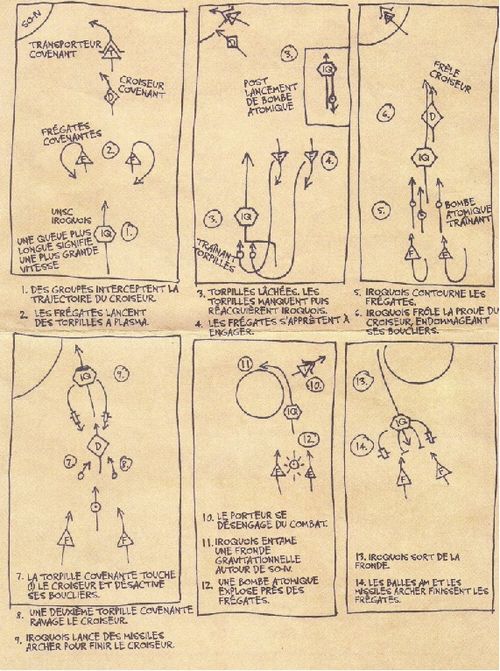 SO-N
TRANSPORTEUR
COVENANT
T
CROISEUR
COVENANT
D
FRÉGATES
COVENANTES
2.
F
F
UNSC
IROQUOIS
IQ
1.
UNE QUEUE PLUS
LONGUE SIGNIFIE
UNE PLUS GRANDE
VITESSE
1. DES GROUPES INTERCEPTENT LA
TRAJECTOIRE DU CROISEUR.
2. LES FRÉGATES LANCENT
DES TORPILLES À PLASMA.
D
3.
IQ
POST
LANCEMENT
DE BOMBE
ATOMIQUE
F
F
4.
3.
IQ
TRAÎNANT
TORPILLES
3. TORPILLES LÂCHÉES. LES
TORPILLES MANQUENT PUIS
RÉACQUIÈRENT IROQUOIS.
4. LES FRÉGATES S'APPRÊTENT À
ENGAGER.
FRÊLE
CROISEUR
6.
D
IQ
5.
BOMBE
ATOMIQUE
TRAÎNANT
F
F
5. IROQUOIS CONTOURNE LES
FRÉGATES.
6. IROQUOIS FRÔLE LA PROUE DU
CROISEUR, ENDOMMAGEANT
SES BOUCLIERS.
IQ
9.
D
7.
8.
F
F
7. LA TORPILLE COVENANTE TOUCHE
LE CROISEUR ET DÉSACTIVE
SES BOUCLIERS.
8. UNE DEUXIÈME TORPILLE COVENANTE
RAVAGE LE CROISEUR.
9. IROQUOIS LANCE DES MISSILES
ARCHER POUR FINIR LE CROISEUR.
11
10.
IQ
12.
F
F
10. LE PORTEUR SE
DÉSENGAGE DU COMBAT.
11. IROQUOIS ENTAME
UNE FRONDE
GRAVITATIONNELLE
AUTOUR DE SO-N.
12. UNE BOMBE ATOMIQUE
EXPLOSE PRÈS DES
FRÉGATES.
13.
IQ
14.
F
F
13. IROQUOIS SORT DE LA
FRONDE.
14. LES BALLES AM ET LES
MISSILES ARCHER FINISSENT LES
FRÉGATES.